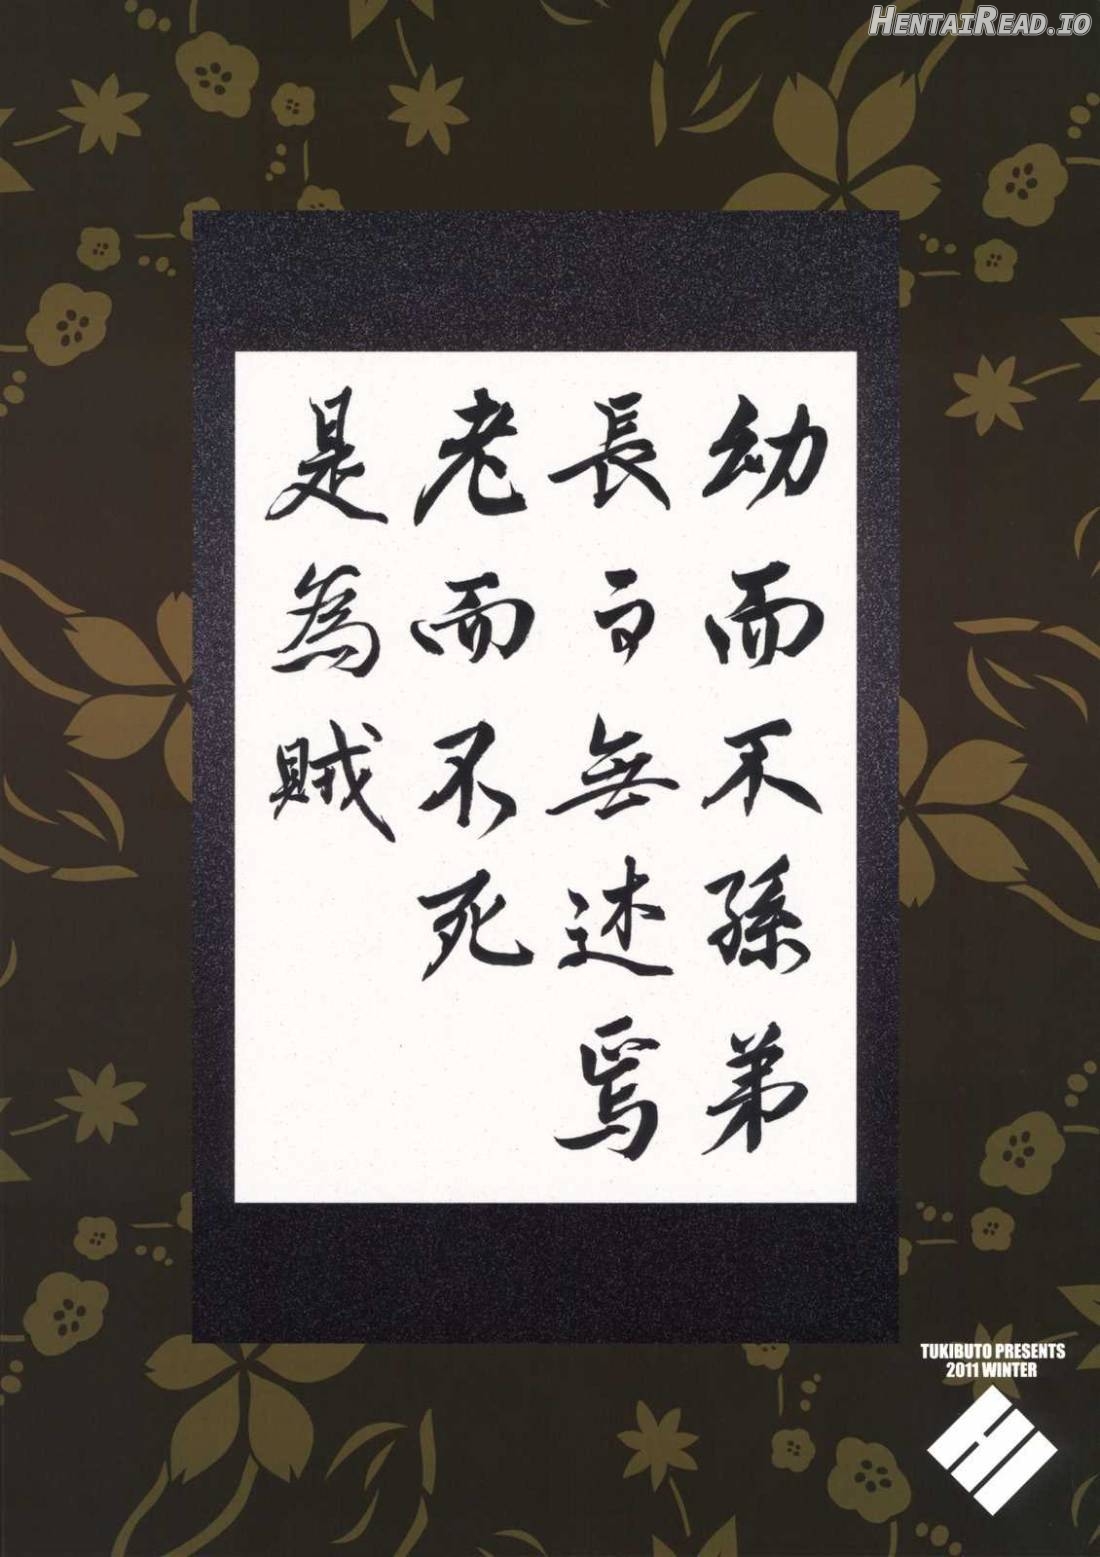 HENTAIREAD.IO
幼而不孫弟
長而無述焉
老而不死
是為賊
TUKIBUTO PRESENTS
2011 WINTER
HI